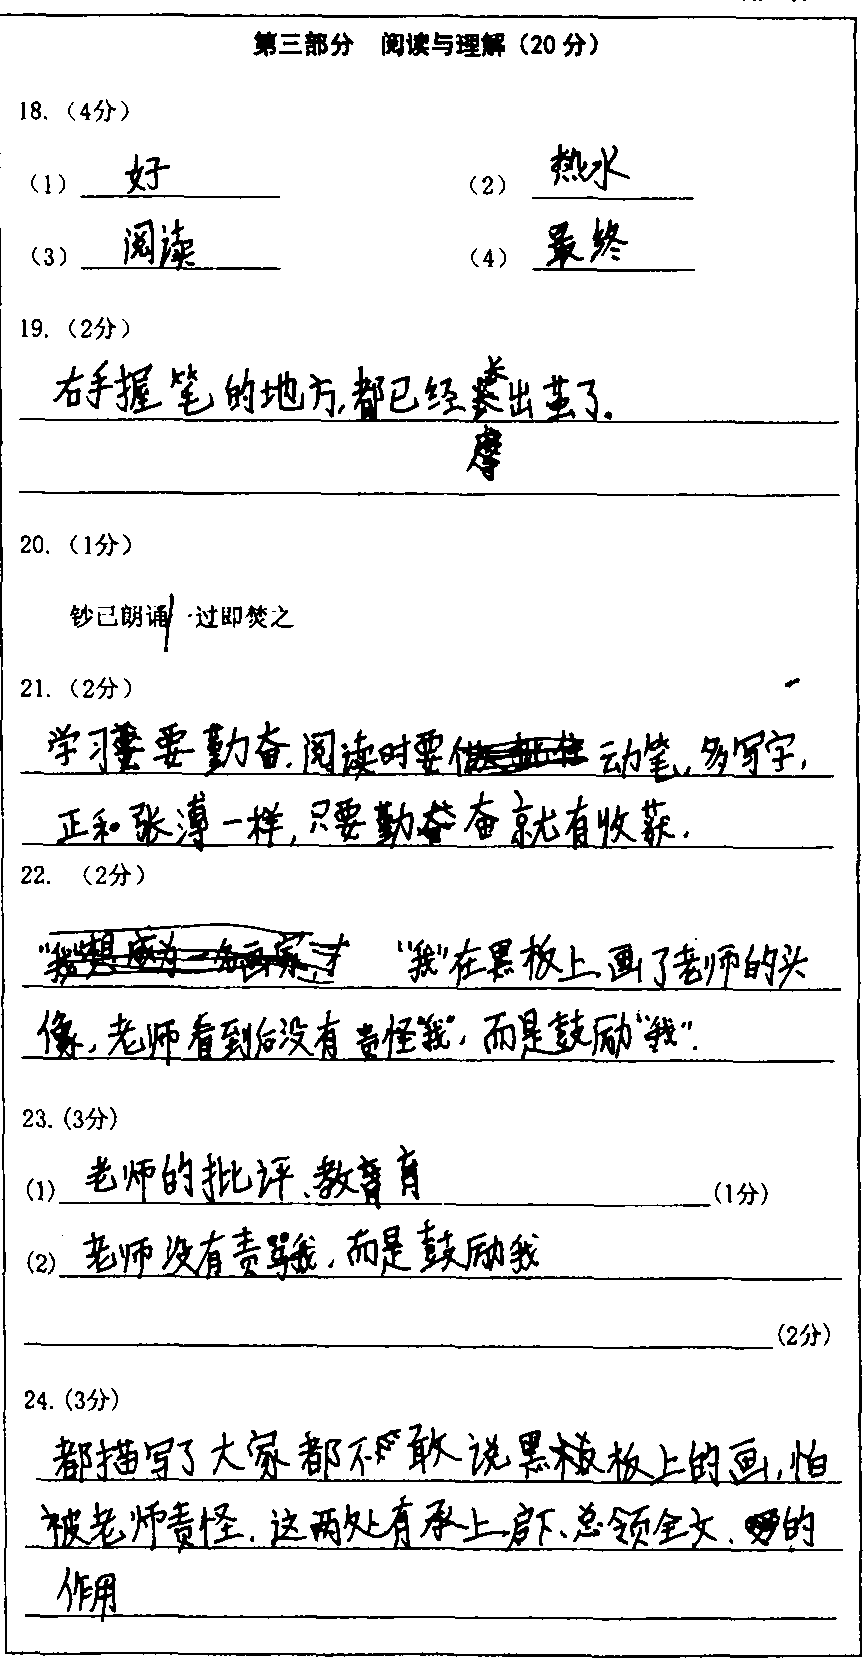 第三部分 阅读与理解（20分）
18.（4分）
（1） 好 （2） 热水
（3） 阅读 （4） 最终
19.（2分）
右手握笔的地方,都已经出茧了.
摩
20.（1分）
钞已朗诵/一过即焚之
21.（2分）
学习要勤奋.阅读时要动笔,多写字,
正和张溥一样,只要勤奋就有收获.
22.（2分）
“我”在黑板上画了老师的头
像,老师看到后没有责怪“我”,而是鼓励“我”.
23.(3分)
(1) 老师的批评、教育 (1分)
(2) 老师没有责骂我,而是鼓励我
(2分)
24.(3分)
都描写了大家都不敢说黑板上的画,怕
被老师责怪.这两处有承上启下、总领全文、的
作用